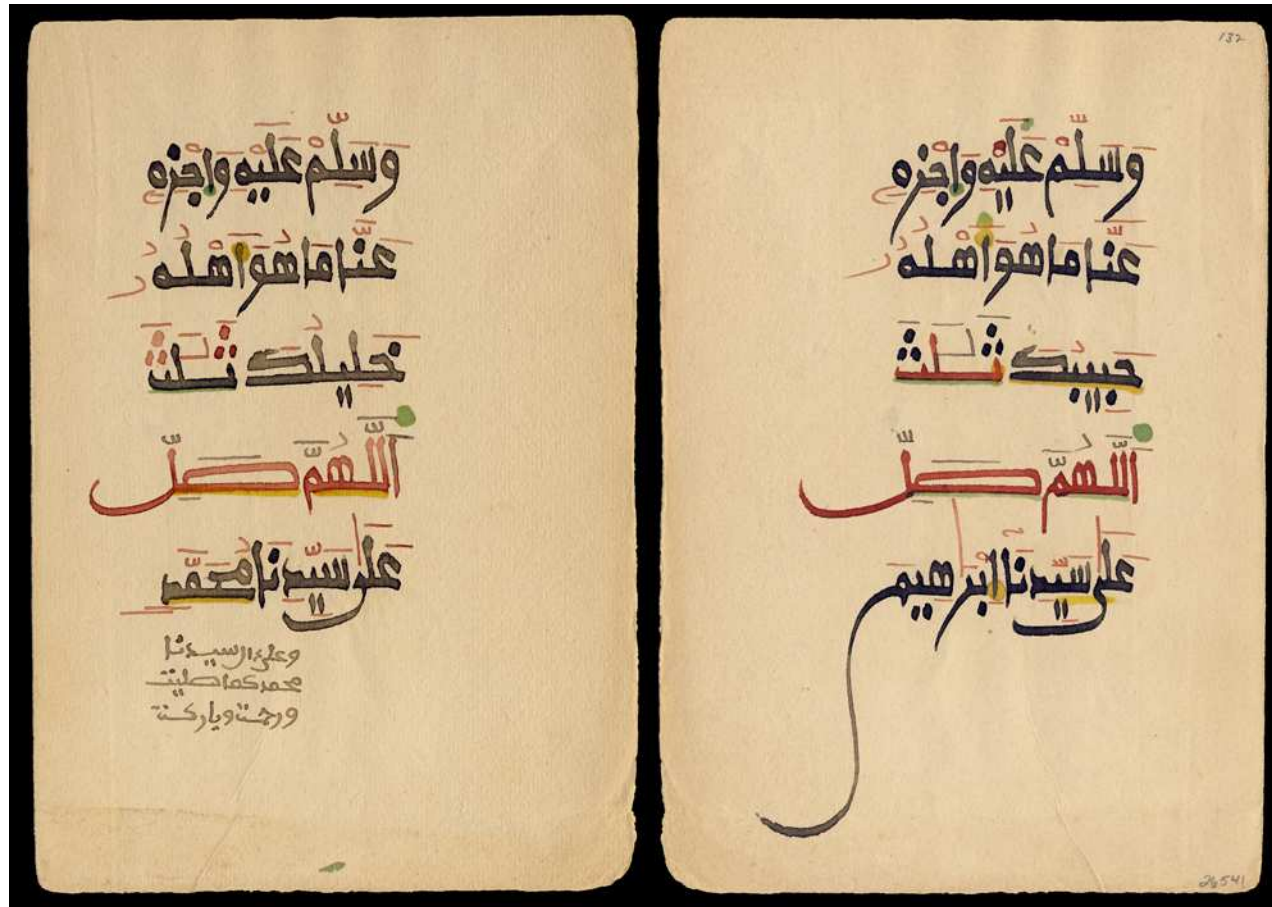 132
وَسَلِّمْ عَلَيْهِ وَاجْزِهِ
عَنَّا مَا هُوَ اَهْلُهُ
حَبِيبِكَ ثَلٰثَ
اَللّٰهُمَّ صَلِّ
عَلٰى سَيِّدِنَا اِبْرٰهِيم
26541
وَسَلِّمْ عَلَيْهِ وَاجْزِهِ
عَنَّا مَا هُوَ اَهْلُهُ
خَلِيلُكَ ثَلٰثَ
اَللّٰهُمَّ صَلِّ
عَلٰى سَيِّدِنَا مُحَمَّدٍ
وعلى ءال سيدنا
محمد كما صليت
ورحمت وباركت